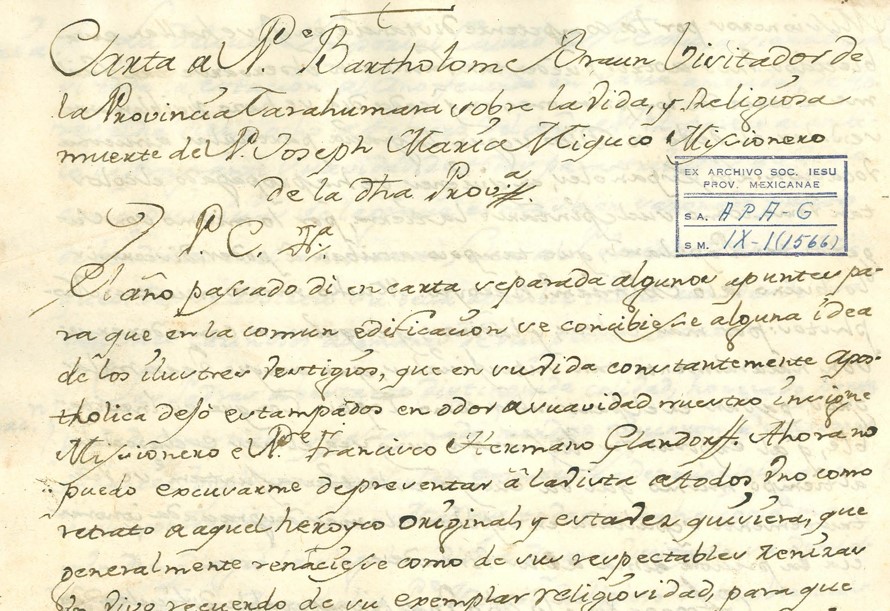 Carta al P.e Bartholome Braun Visitador de
la Provincia Tarahumara sobre la Vida, y Religiosa
muerte del P. Joseph Maria Miqueo Missionero
de la dha Prov.a
EX ARCHIVO SOC. IESU
PROV. MEXICANAE
S A. APA-G
S M. IX-1(1566)
P. C. &.a
El año passado di en carta separada algunos apuntes pa-
ra que en la comun edificacion se concibiesse alguna idea
de los ilustres vestigios, que en su vida constantemente Apos-
tholica dejó estampados en odor a suavidad nuestro insigne
Missionero el P.e Francisco Hermano Glandorff. Ahora no
puedo excusarme de presentar â la vista a todos Vno como
retrato a aquel heroyco Original, y esta vez quisiera, que
generalmente renaciesse como de sus respectables zenizas
Vn vivo recuerdo de su exemplar religiosidad, para que